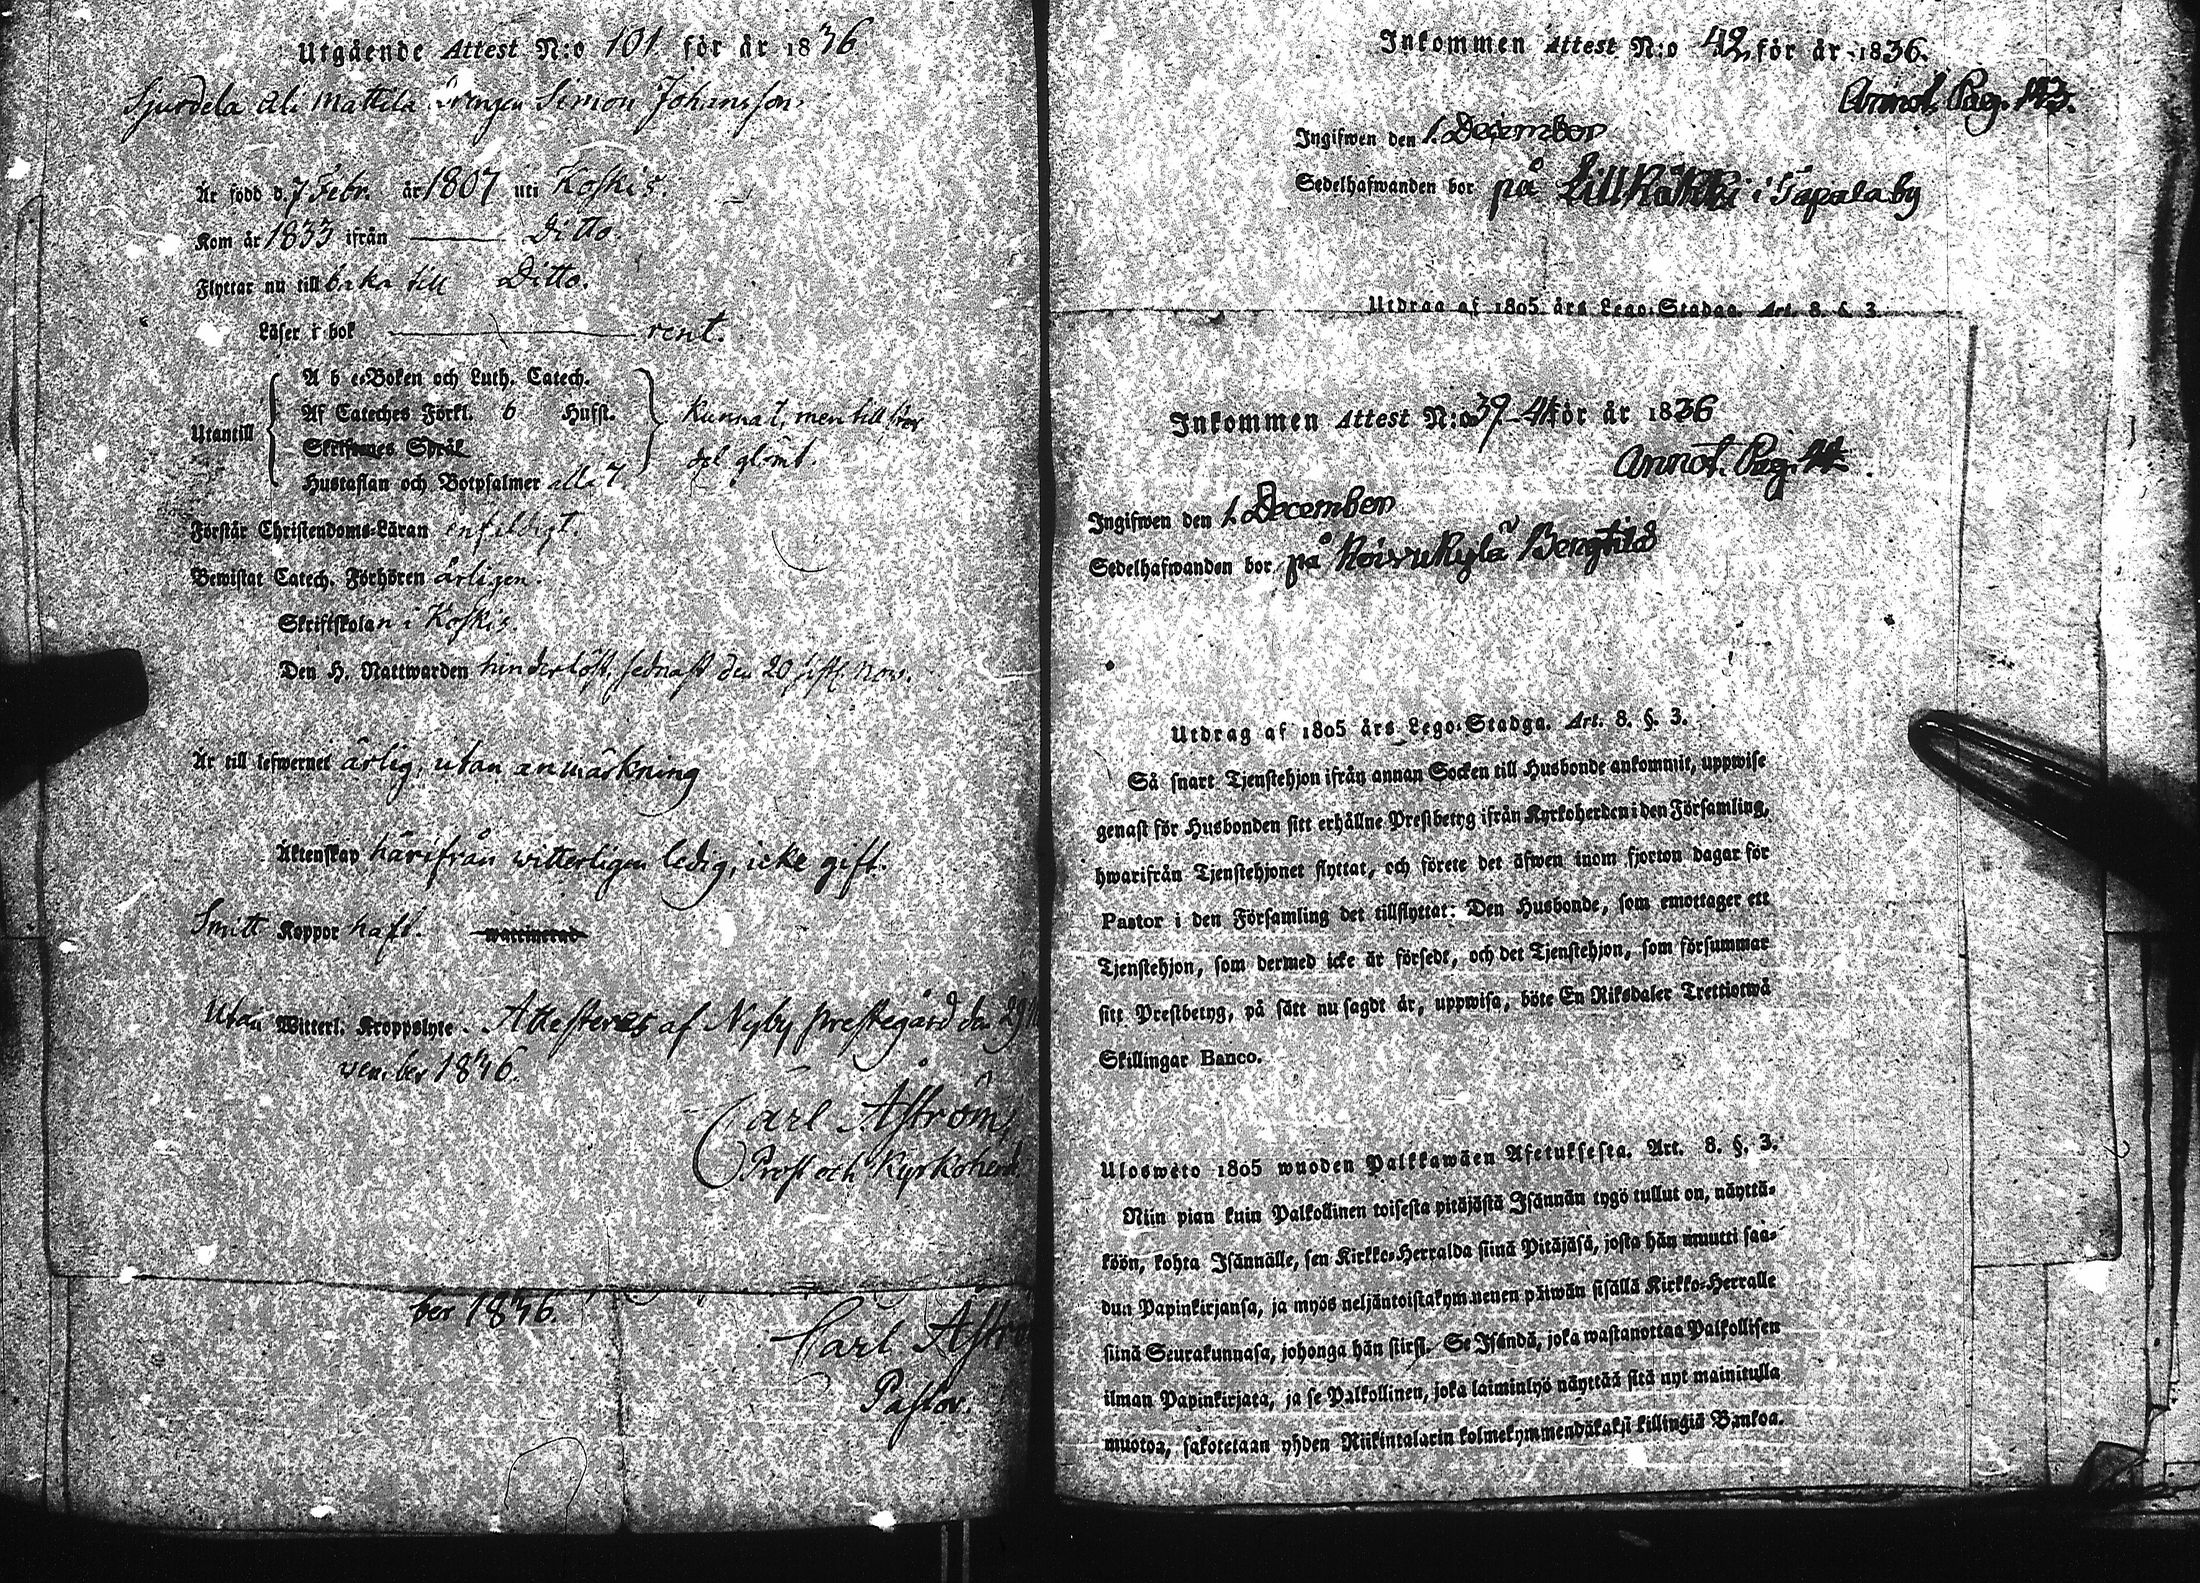 Utgående Attest N:o 101 för år 1836
Sjurdela al. Mattila Drengen Simon Johansson
Är född d. 7 Febr. år 1807 uti Koskis.
Kom år 1833 ifrån Ditto.
Flyttar nu tillbaka till Ditto.
Läser i bok rent.
Utantill
A b c-Boken och Luth. Catech.
Af Cateches Förkl. 6 Hufst.
Skriftenes Språk
Hustaflan och Botpsalmer alla 7
kunnat, men till stor
del glömt.
Förstår Christendoms-Läran enfeldigt.
Bewistat Catech. Förhören årligen.
Skriftskolan i Koskis.
Den H. Nattwarden hinderlöst, sednast den 20 sistl. Nov.
Är till lefwernet ärlig, utan anmärkning
Äktenskap härifrån witterligen ledig, icke gift.
Smitt Koppor haft. waccinerad
Utan Witterl. Kroppslyte. Attesteras af Nyby prestegård den 29
vember 1836.
Carl Åström,
Prost och Kyrkoherde
ber 1836.
Carl Åströ
Pastor.
Inkommen Attest N:o 42 för år 1836.
Annot. Pag.
Ingifwen den 1. December
Sedelhafwanden bor på i Tapala by
Utdrag af 1805 års Lego-Stadga. Art. 8. §. 3.
Inkommen Attest N:o 39-41 för år 1836
Annot. Pag.
Ingifwen den 1. December
Sedelhafwanden bor på Koivukylä Bengtilä
Utdrag af 1805 års Lego-Stadga. Art. 8. §. 3.
Så snart Tjenstehjon ifrån annan Socken till Husbonde ankommit, uppwise
genast för Husbonden sitt erhållne Prestbetyg ifrån Kyrkoherden i den Församling,
hwarifrån Tjenstehjonet flyttat, och förete det äfwen inom fjorton dagar för
Pastor i den Församling det tillflyttat: Den Husbonde, som emottager ett
Tjenstehjon, som dermed icke är försedt, och det Tjenstehjon, som försummar
sitt Prestbetyg, på sätt nu sagdt är, uppwisa, böte En Riksdaler Trettiotwå
Skillingar Banco.
Uloswéto 1805 wuoden Palkkawäen Asetuksesta. Art. 8. §. 3.
Niin pian kuin Palkollinen toisesta pitäjästä Isännän tygö tullut on, näyttä-
köön, kohta Isännälle, sen Kirkko-Herralda siinä Pitäjäsä, josta hän muutti saa-
dun Papinkirjansa, ja myös neljäntoistakymmenen päiwän sisällä Kirkko-Herralle
siinä Seurakunnasa, johonga hän siirsi. Se Isändä, joka wastanottaa Palkollisen
ilman Papinkirjata, ja se Palkollinen, joka laiminlyö näyttää sitä nyt mainitulla
muotoa, sakotetaan yhden Riikintalarin kolmekymmendäkaksi killingiä Bankoa.